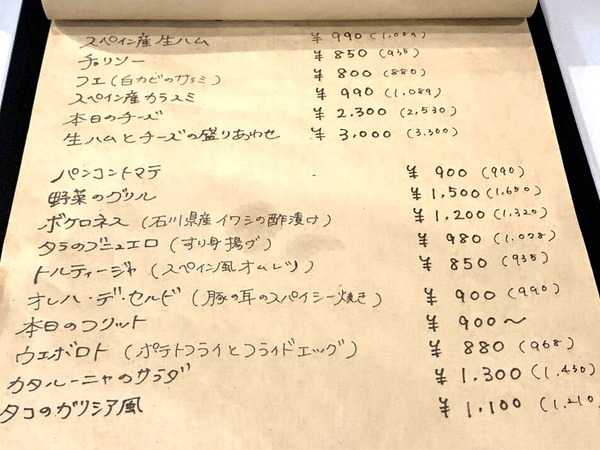 スペイン産生ハム ¥990(1,089)
チョリソー ¥850(935)
フエ(白カビのサラミ) ¥800(880)
スペイン産カラスミ ¥990(1,089)
本日のチーズ ¥2,300(2,530)
生ハムとチーズの盛りあわせ ¥3,000(3,300)
パンコントマテ ¥900(990)
野菜のグリル ¥1,500(1,650)
ボケロネス(石川県産イワシの酢漬け) ¥1,200(1,320)
タラのブニュエロ(すり身揚げ) ¥980(1,078)
トルティージャ(スペイン風オムレツ) ¥850(935)
オレハ・デ・セルド(豚の耳のスパイシー焼き) ¥900(990)
本日のフリット ¥900〜
ウエボロト(ポテトフライとフライドエッグ) ¥880(968)
カタルーニャのサラダ ¥1,300(1,430)
タコのガリシア風 ¥1,100(1,210)